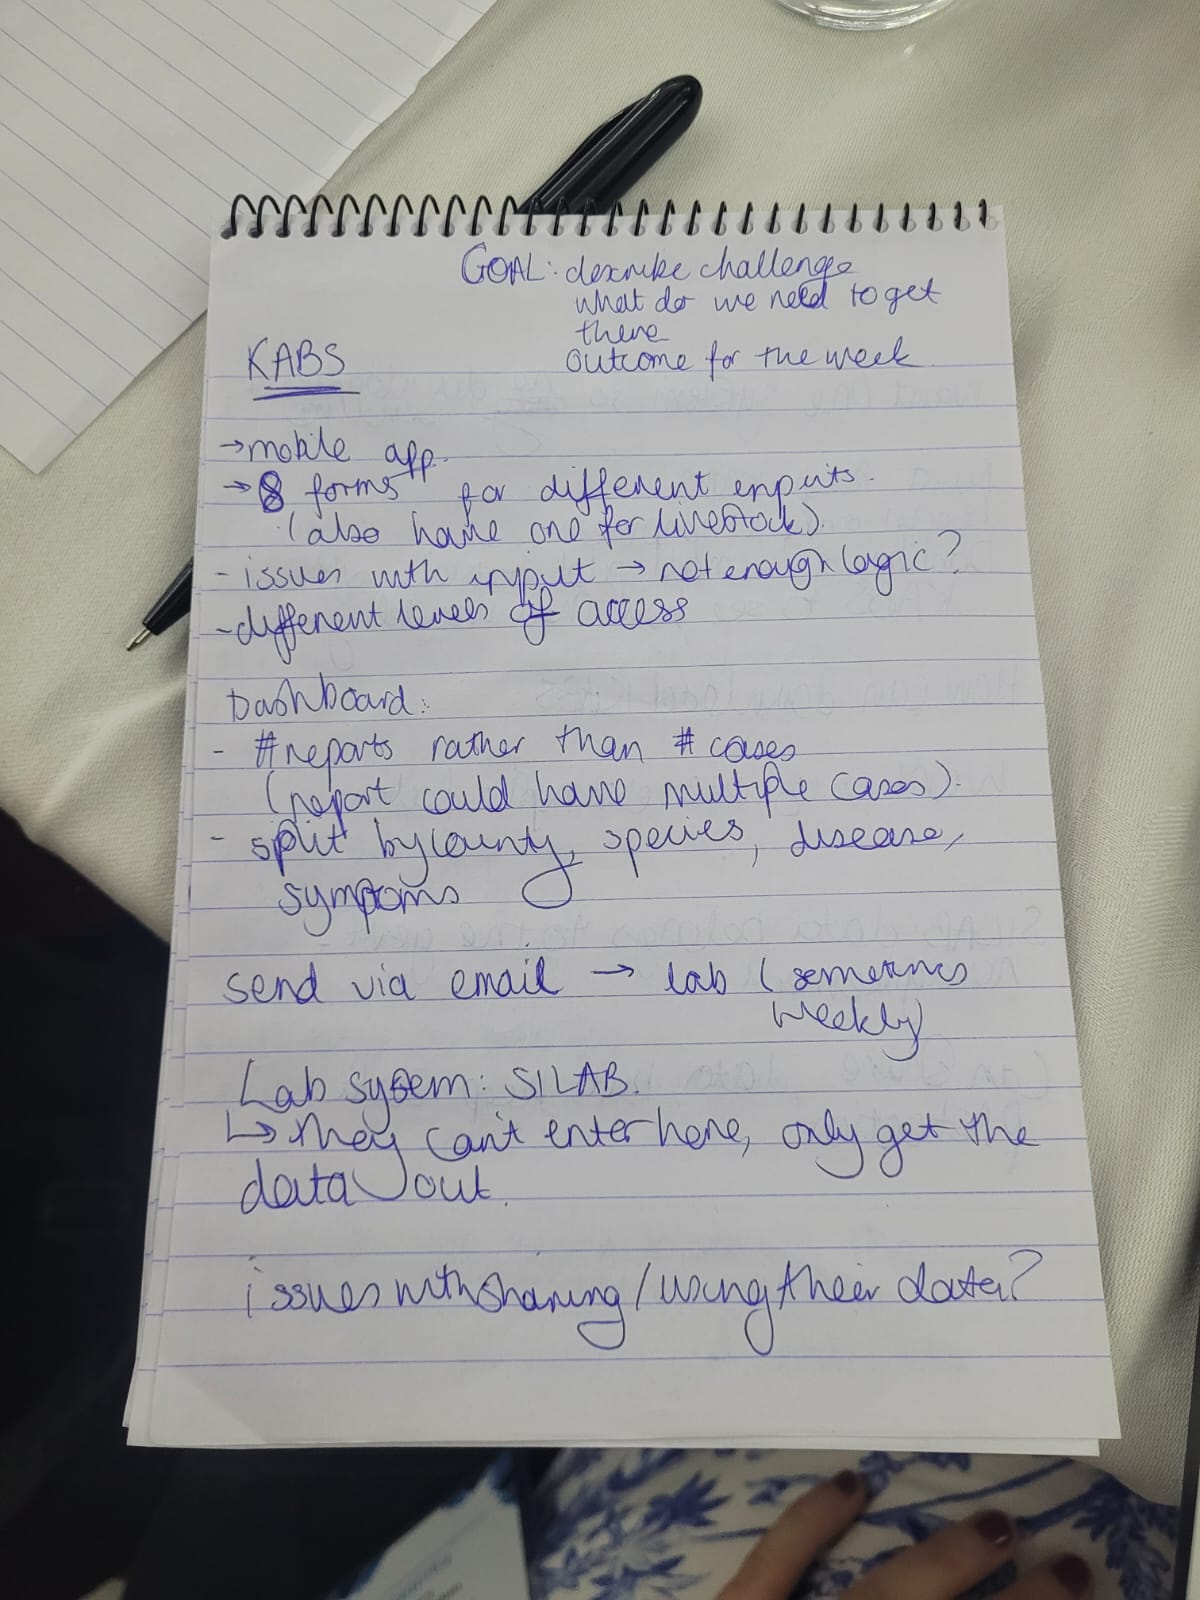 GOAL: describe challenge
what do we need to get
there
outcome for the week
KABS
→ mobile app.
→ 8 forms for different inputs.
(also have one for livestock).
- issues with input → not enough logic?
- different levels of access
Dashboard:
- #reports rather than # cases
(report could have multiple cases).
- split by county, species, disease,
sympoms
send via email → lab (sometimes
weekly)
Lab system: SILAB.
↳ they can't enter here, only get the
data out.
issues with sharing / using their data?